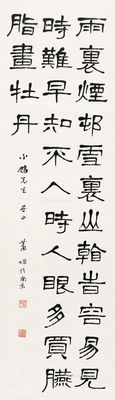 雨裏煙邨雪裏山看旹容易見
時難早知不入時人眼多買臙
脂畫牡丹
先生 蕭嫻於南京